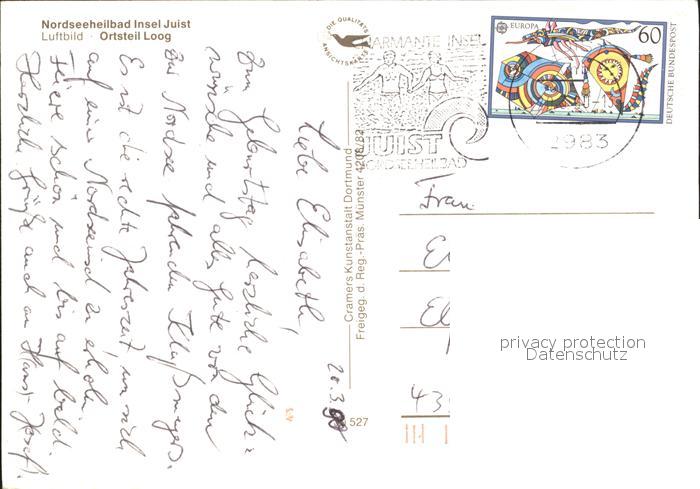 Nordseeheilbad Insel Juist
Luftbild · Ortsteil Loog
DIE QUALITÄTS
ANSICHTSKARTE
CHARMANTE INSEL
JUIST
NORDSEEHEILBAD
2983
EUROPA
60
DEUTSCHE BUNDESPOST
Cramers Kunstanstalt Dortmund
Freigeg. d. Reg.-Präs. Münster 4208/82
527
20.3.
Liebe Elisabeth,
Zum Geburtstag herzliche Glück-
wünsche und alles Gute von den
zur Nordsee fahrenden
Es ist die rechte Jahreszeit, um sich
auf einer Nordseeinsel zu erholen.
schön und bis auf bald.
Herzliche Grüße auch an Hans-Josef.
Frau
E
El
43
privacy protection
Datenschutz